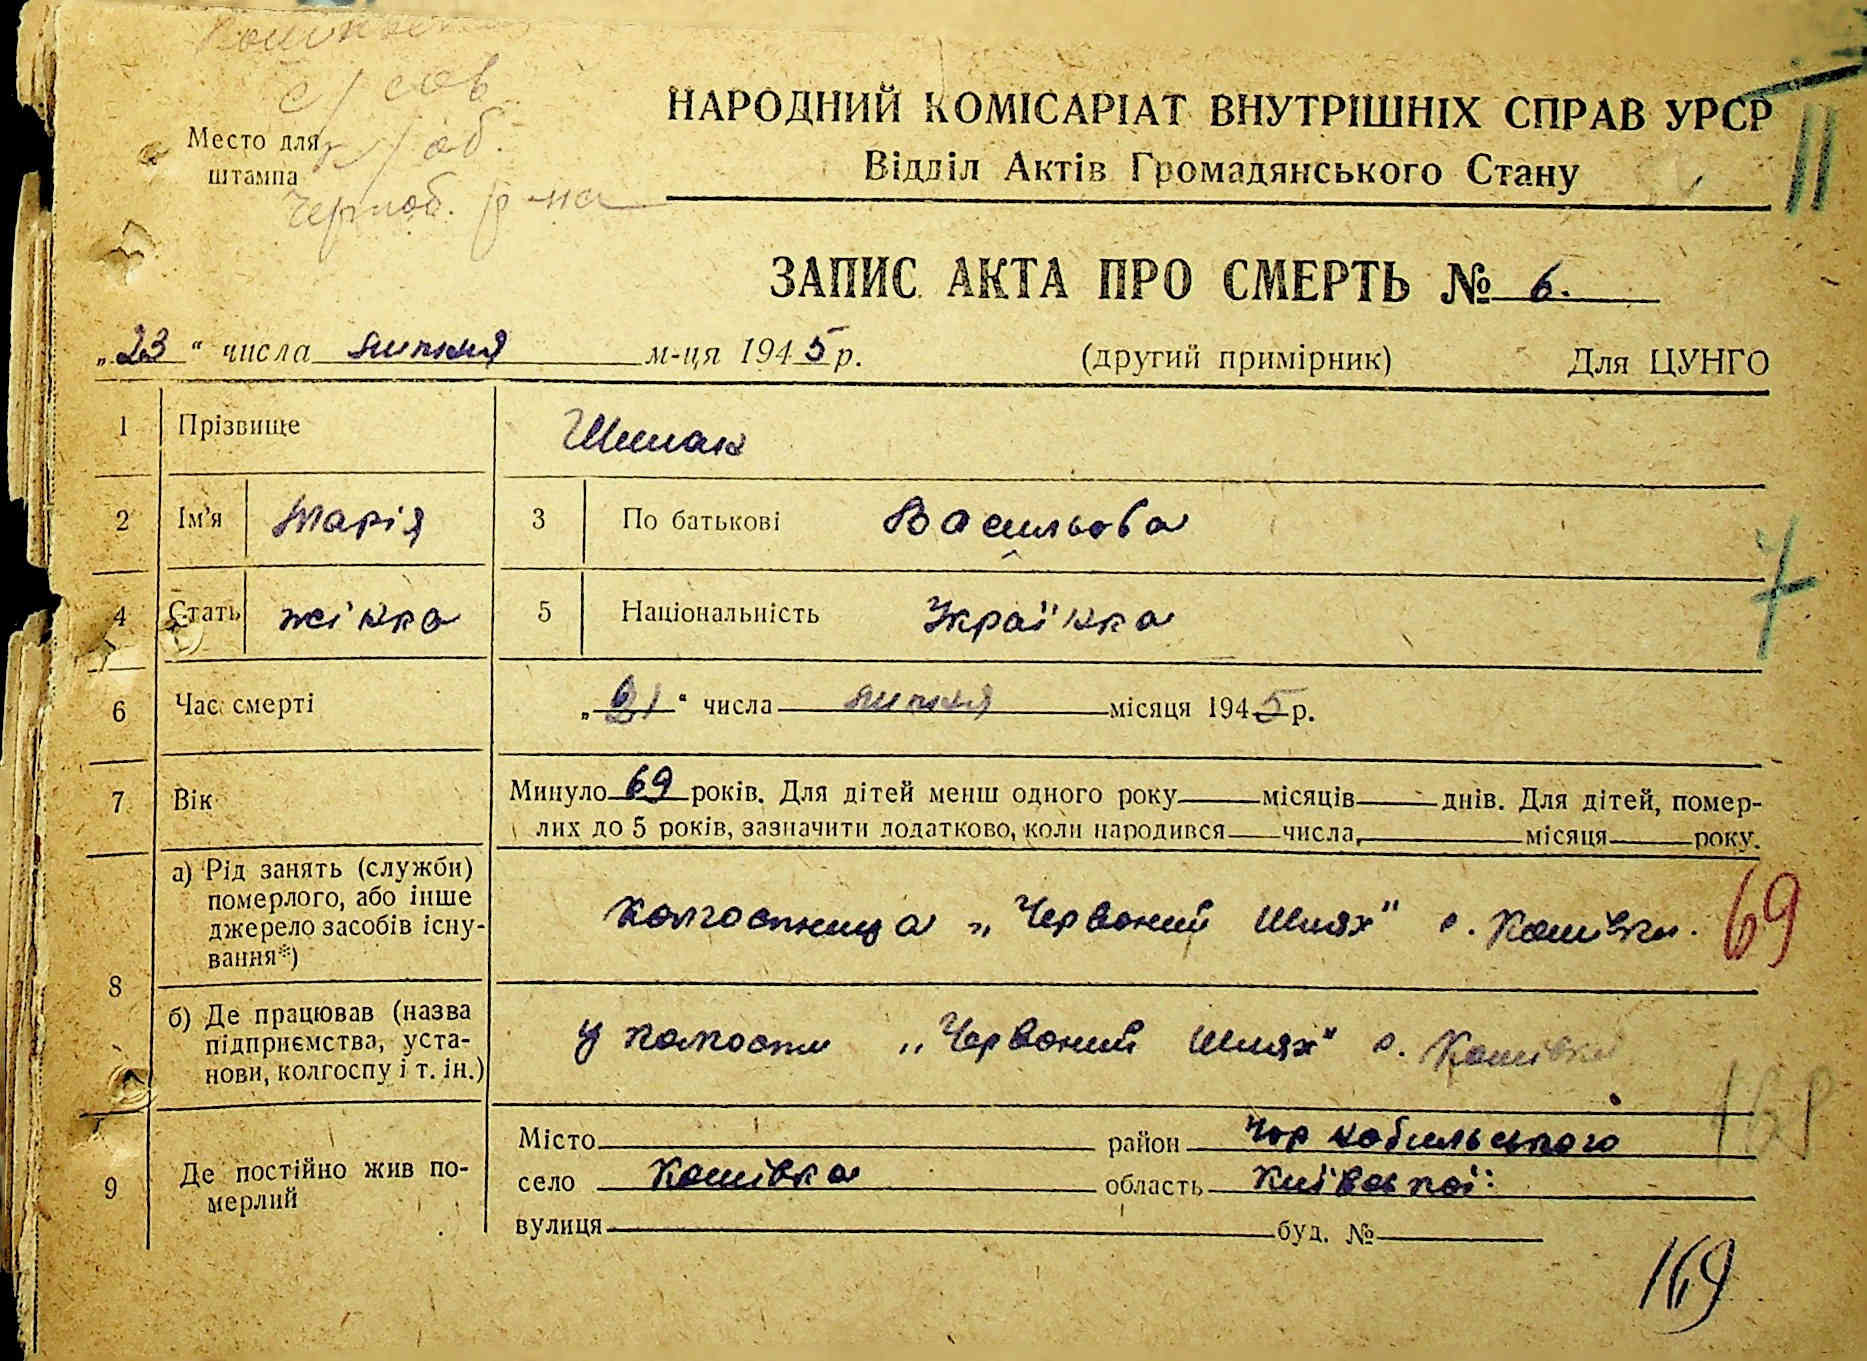 с/сов
Место для
штампа
Чорноб. р-на
НАРОДНИЙ КОМІСАРІАТ ВНУТРІШНІХ СПРАВ УРСР
Відділ Актів Громадянського Стану
11
ЗАПИС АКТА ПРО СМЕРТЬ № 6.
„23“ числа липня м-ця 1945 р. (другий примірник) Для ЦУНГО
1 Прізвище Шпак
2 Ім'я Марія 3 По батькові Васильова
4 Стать жінка 5 Національність Українка
7
6 Час смерті „21“ числа липня місяця 1945 р.
7 Вік Минуло 69 років. Для дітей менш одного року місяців днів. Для дітей, помер-
лих до 5 років, зазначити додатково, коли народився числа, місяця року.
8 а) Рід занять (служби)
померлого, або інше
джерело засобів існу-
вання*)
Колгоспниця „Червоний Шлях" с. Кошівки.
69
б) Де працював (назва
підприємства, уста-
нови, колгоспу і т. ін.)
у колгоспи „Червоний Шлях" с. Кошівки
9 Де постійно жив по-
мерлий
Місто район Чорнобильського
село Кошівка область Київської
вулиця буд. №
169